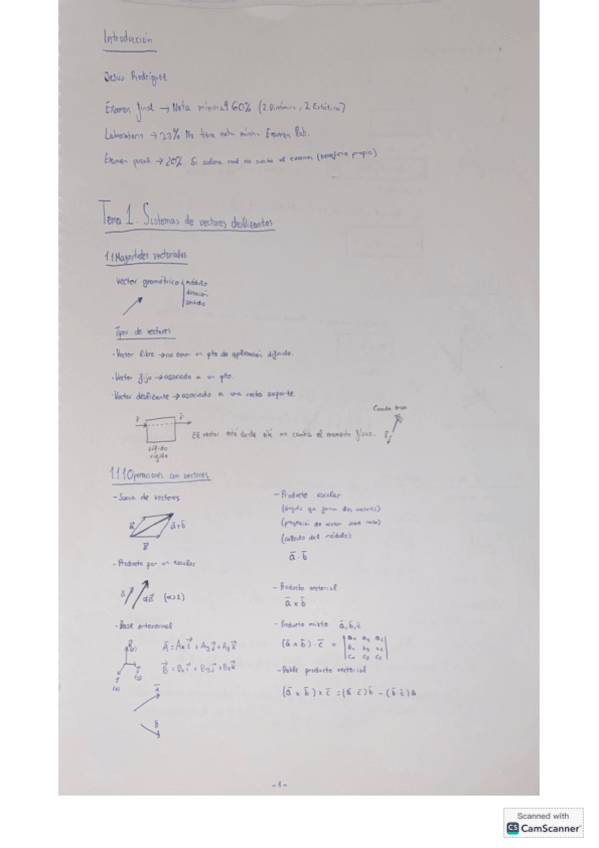 Introducción
Jesús Rodríguez
Examen final → Nota mínima 4 60% (2 Dinámica, 2 Estática)
Laboratorio → 20% No tiene nota mínima Examen Lab.
Examen parcial → 20% Si sale mal no cuenta el examen (beneficio propio)
Tema 1. Sistemas de vectores deslizantes
1.1 Magnitudes vectoriales
Vector geométrico módulo
dirección
sentido
Tipos de vectores
- Vector libre → no tiene un pto de aplicación definido.
- Vector fijo → asociado a un pto.
- Vector deslizante → asociado a una recta soporte.
sólido
rígido
El vector este donde esté no cambia el momento físico.
1.1.1 Operaciones con vectores
- Suma de vectores
a⃗ a⃗+b⃗
b⃗
- Producto por un escalar
a⃗ αa⃗ (α>1)
- Base ortonormal
A⃗ = Axi⃗ + Ayj⃗ + Azk⃗
B⃗ = Bxi⃗ + Byj⃗ + Bzk⃗
- Producto escalar
(ángulo que forman dos vectores)
(proyección de vector sobre recta)
(cálculo del módulo)
a̅ · b̅
- Producto vectorial
a̅ x b̅
- Producto mixto a̅, b̅, c̅
(a̅ x b̅) · c̅ = |ax ay az
bx by bz
cx cy cz|
- Doble producto vectorial
(a̅ x b̅) x c̅ = (a̅ · c̅) b̅ - (b̅ · c̅) a̅
- 1 -
Scanned with
CS CamScanner